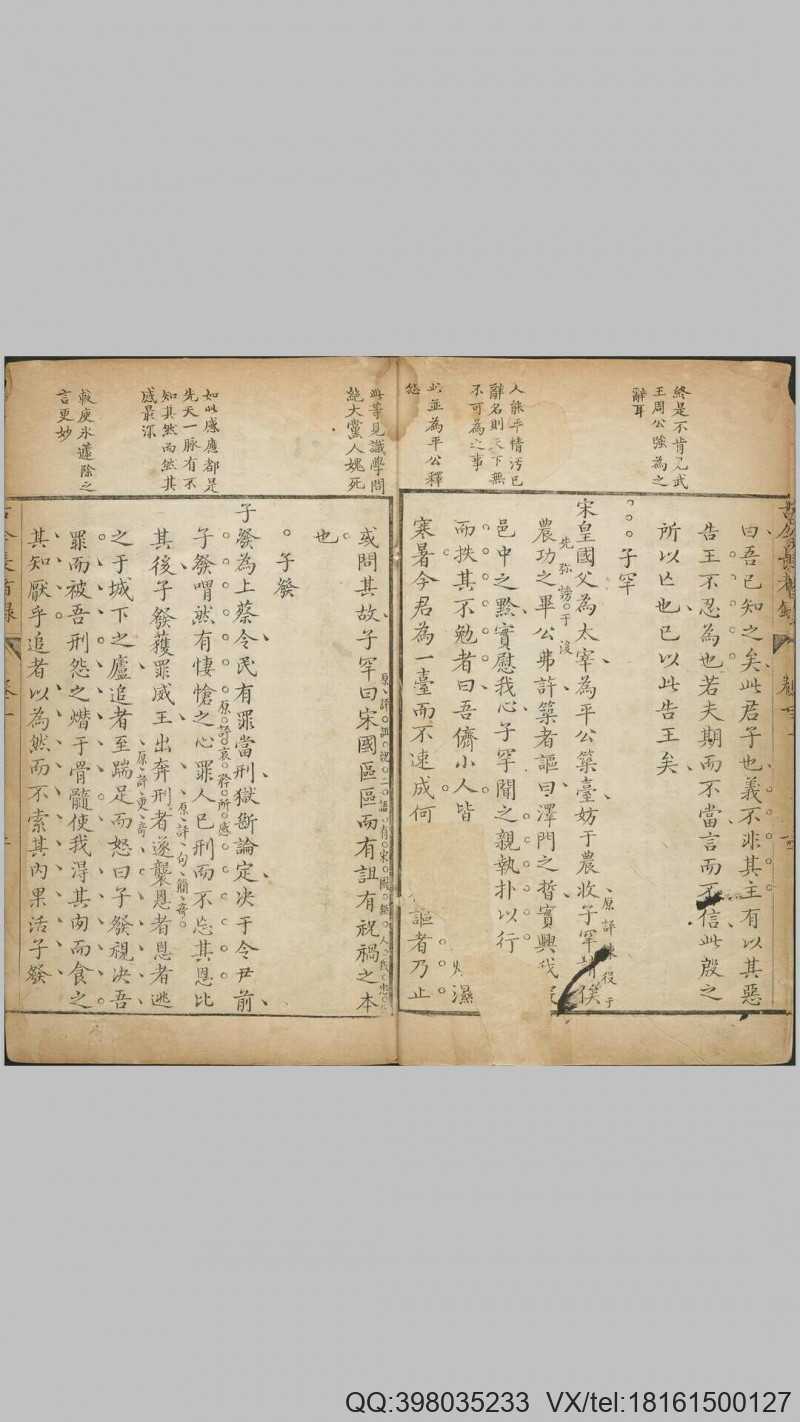 終是不肯見武
王周公強為之
辭耳
人能平情汚已
辭名則天下無
不可為之事
並為平公釋
曰吾已知之矣此君子也義不非其主有以其惡
告王不忍為也若夫期而不當言而不信此殷之
所以亡也已以此告王矣
子罕
宋皇國父為太宰為平公築臺妨于農收子罕請俟
原評 役于
農功之畢公弗許築者謳曰澤門之晳實興我
先弥謗于後
邑中之黔實慰我心子罕聞之親執扑以行
而抶其不勉者曰吾儕小人皆
濕
寒暑今君為一臺而不速成何
謳者乃止
此等見識學問
絶大黨人媿死
如此感應都是
先天一脉有不
知其然而然其
感最深
較庾氷蘧除之
言更妙
或問其故子罕曰宋國區區而有詛有祝禍之本
原評詛祝二語有宋國
也
子發
子發為上蔡令民有罪當刑獄斷論定决于令尹前
子發喟然有悽愴之心罪人已刑而不忘其恩比
原評哀矜所感
其後子發獲罪威王出奔刑者遂襲恩者恩者逃
原評句簡奇
之于城下之廬追者至踹足而怒曰子發視决吾
原評更奇
罪而被吾刑怨之憯于骨髓使我得其肉而食之
其知厭乎追者以為然而不索其內果活子發
QQ:398035233 VX/tel:18161500127